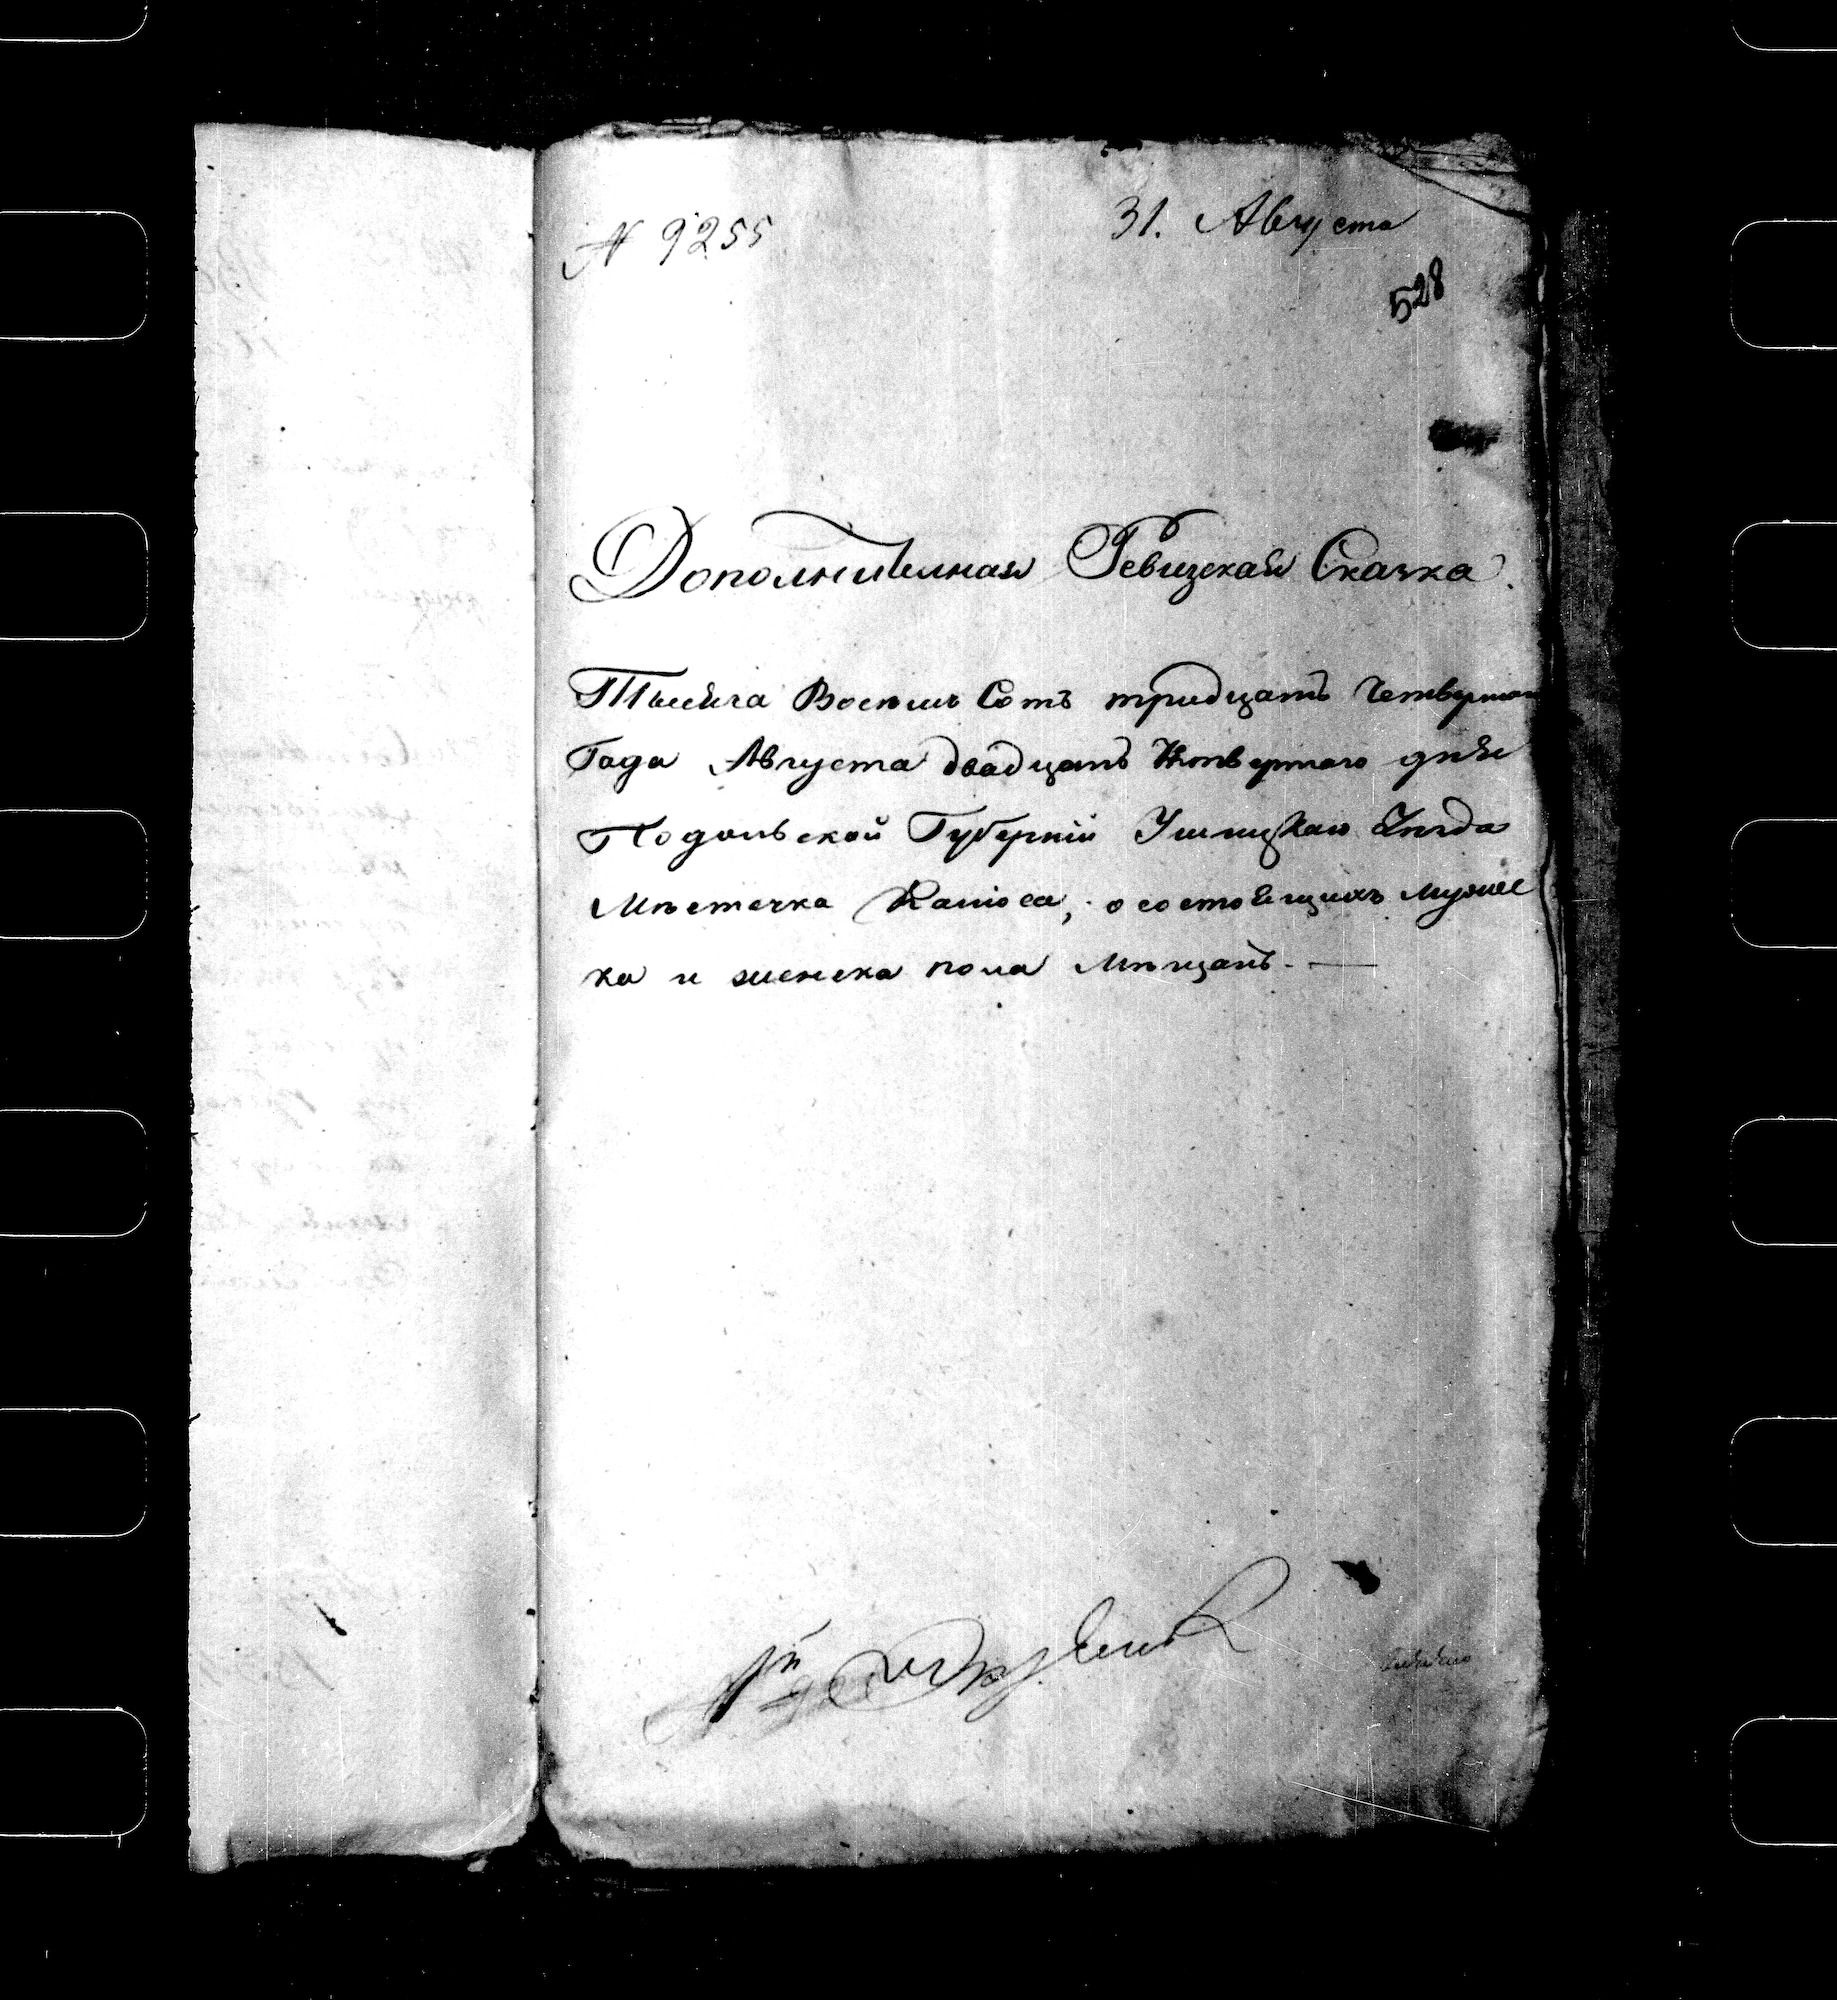 № 9255
31. Августа
528
Дополнителная Ревизская Сказка.
Тысяча Восемь Сотъ тридцать Четвертаго
Года Августа двадцать Четвертаго дня
Подольской Губерніи Ушицкаго Уѣзда
Мѣстечка Калюса, о состоящихъ мужес
ка и женска пола Мѣщанъ.—